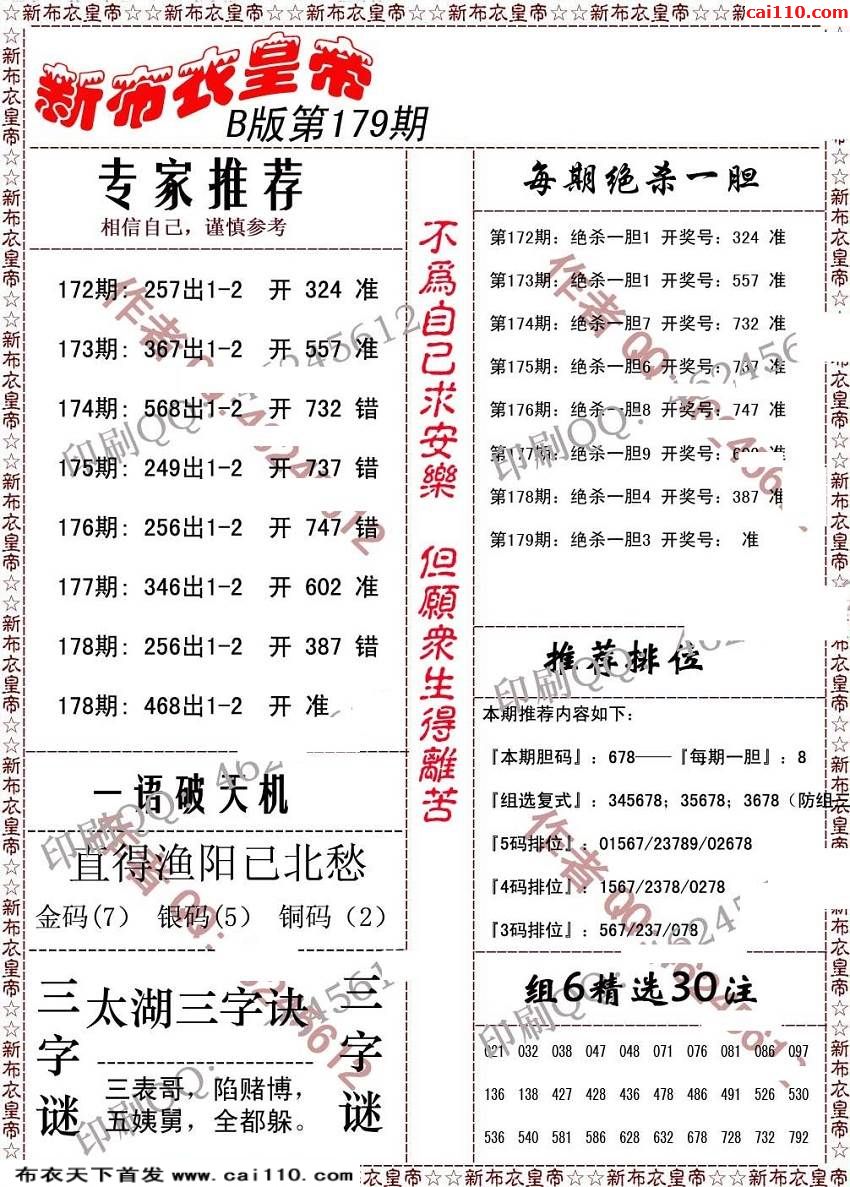 ☆☆新布衣皇帝☆☆新布衣皇帝☆☆新布衣皇帝☆☆新布衣皇帝☆☆新布衣皇帝☆☆
cai110.com
新布衣皇帝
B版第179期
专家推荐
相信自己，谨慎参考
172期: 257出1-2 开 324 准
173期: 367出1-2 开 557 准
174期: 568出1-2 开 732 错
175期: 249出1-2 开 737 错
176期: 256出1-2 开 747 错
177期: 346出1-2 开 602 准
178期: 256出1-2 开 387 错
178期: 468出1-2 开 准
一语破天机
直得渔阳已北愁
金码(7) 银码(5) 铜码（2）
三字谜
太湖三字诀
三表哥，陷赌博，
五姨舅，全都躲。
三字谜
不爲自己求安樂 但願衆生得離苦
每期绝杀一胆
第172期: 绝杀一胆1 开奖号: 324 准
第173期: 绝杀一胆1 开奖号: 557 准
第174期: 绝杀一胆7 开奖号: 732 准
第175期: 绝杀一胆6 开奖号: 737 准
第176期: 绝杀一胆8 开奖号: 747 准
第177期: 绝杀一胆9 开奖号: 准
第178期: 绝杀一胆4 开奖号: 387 准
第179期: 绝杀一胆3 开奖号: 准
推荐排位
本期推荐内容如下:
『本期胆码』: 678——『每期一胆』: 8
『组选复式』: 345678; 35678; 3678（防组三
『5码排位』: 01567/23789/02678
『4码排位』: 1567/2378/0278
『3码排位』: 567/237/078
组6精选30注
021 032 038 047 048 071 076 081 086 097
136 138 427 428 436 478 486 491 526 530
536 540 581 586 628 632 678 728 732 792
作者QQ:
印刷QQ:
布衣天下首发 www.cai110.com
衣皇帝☆☆新布衣皇帝☆☆新布衣皇帝☆☆新布衣皇帝